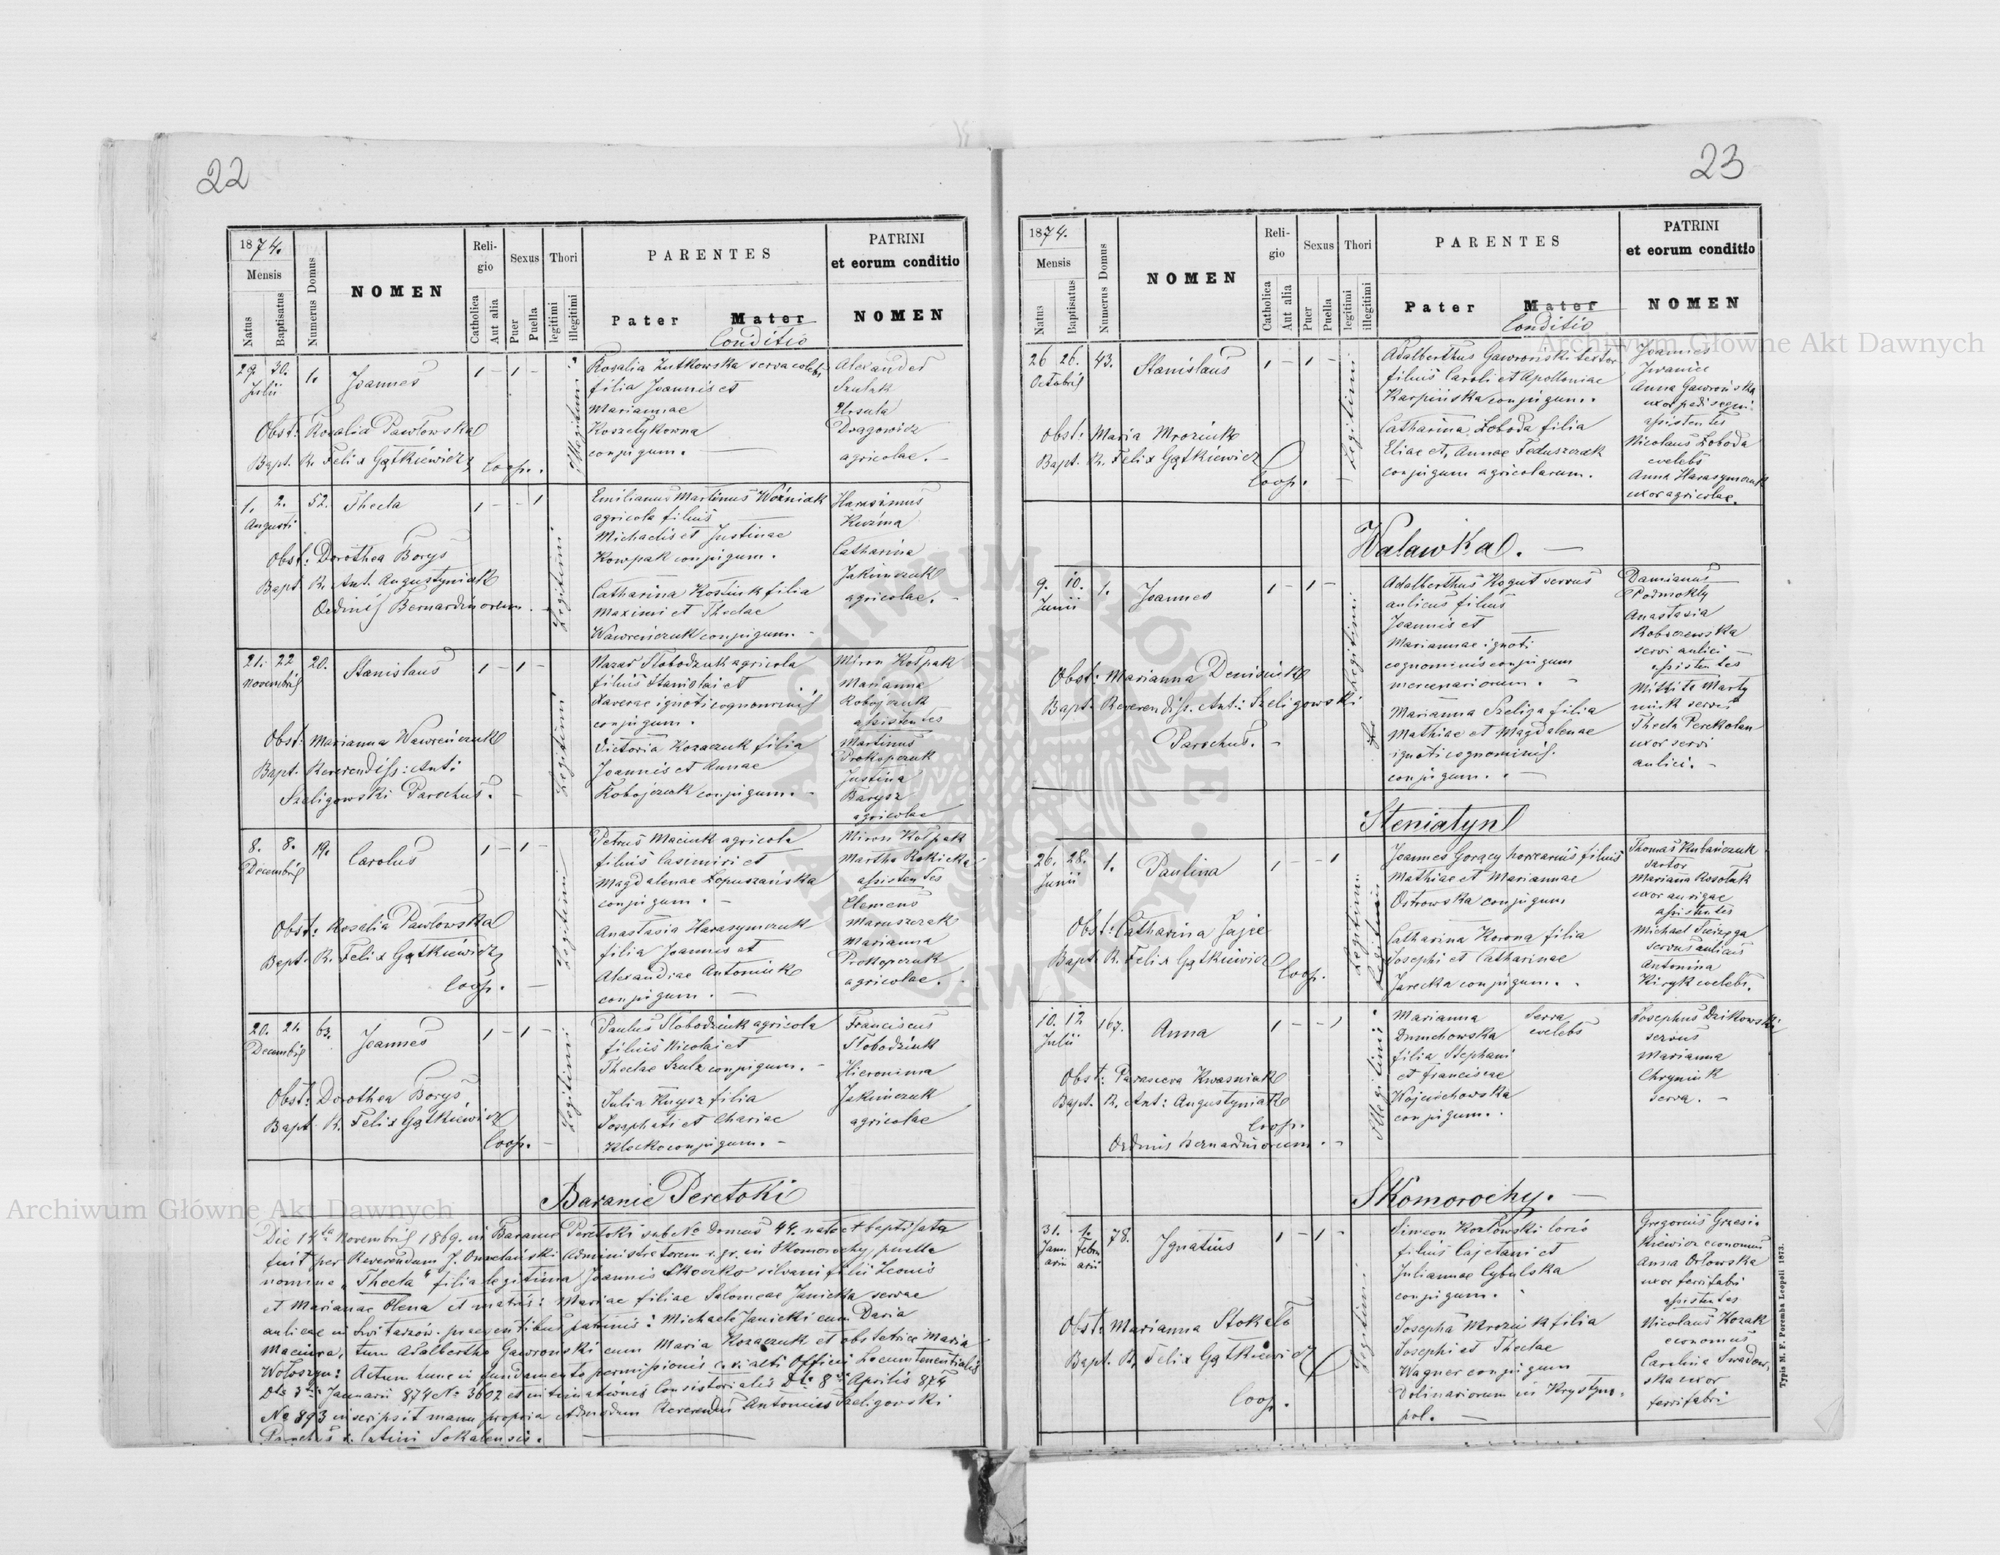 22
1874.
Mensis
Natus
Baptisatus
Numerus Domus
NOMEN
Religio
Catholica
Aut alia
Sexus
Puer
Puella
Thori
legitimi
illegitimi
PARENTES
Pater
Mater
Conditio
PATRINI
et eorum conditio
NOMEN
29. 30. 1. Joannes 1 - 1 -
Julii
Obst: Rosalia Pawłowska
Bapt. R. Felix Gątkiewicz
Coop.
Illegitimi
Rosalia Zutkowska serva celebs
filia Joannis et
Mariannae
Koszelykowna
conjugum.
Alexander
Szulak
Ursula
Dragowicz
agricolae.
1. 2. 52. Thecla 1 - - 1
Augusti
Obst: Dorothea Borys
Bapt R. Ant. Augustyniak
Ordinis Bernardinorum.
Legitimi
Emilianus Martinus Woźniak
agricola filius
Michaelis et Justinae
Kowpak conjugum.
Catharina Kostiuk filia
Maximi et Theclae
Wawreńczuk conjugum.
Harasimus
Kuzma
Catharina
Jakimczuk
agricolae.
21. 22 20. Stanislaus 1 - 1 -
Novembris
Obst: Marianna Wawreńczuk
Bapt. Reverendiss: Ant:
Szeligowski Parochus.
Legitimi
Nazar Słobodziuk agricola
filius Stanislai et
Xaverae ignoti cognominis
conjugum.
Victoria Kozaczuk filia
Joannis et Annae
Kobojczuk conjugum.
Miron Kołpak
Marianna
Kobojczuk
assistentes
Martinus
Prokopczuk
Justina
Barysz
agricolae
8. 8. 19. Carolus 1 - 1 -
Decembris
Obst: Rosalia Pawłowska
Bapt. R. Felix Gątkiewicz
Coop.
Legitimi
Petrus Maciuk agricola
filius Casimiri et
Magdalenae Łopuszańska
conjugum.
Anastasia Harasymczuk
filia Joannis et
Alexandrae Antoniuk
conjugum.
Miron Kołpak
Martha Rokicka
assistentes
Clemens
Maruszczak
Marianna
Prokopczuk
agricolae.
20. 21. 63. Joannes 1 - 1 -
Decembris
Obst: Dorothea Borys,
Bapt. R. Felix Gątkiewicz
Coop.
Legitimi
Paulus Słobodziuk agricola
filius Nicolai et
Theclae Szulz conjugum.
Julia Kuysz filia
Josephati et Chariae
Klocko conjugum.
Franciscus
Słobodziuk
Hieronima
Jakimczuk
agricolae
Baranie Peretoki
Die 14ta Novembris 1869. in Baranie Peretoki sub No Domus 44. nata et baptisata
fuit per Reverendum J. Administratorem r. gr. in Skomorochy puella
nomine „Thecla" filia legitima Joannis Skoczko silvani filii Leonis
et Marianae Olena et matris: Mariae filiae Salomeae Janicka servae
aulicae in Świtarzów. praesentibus patrinis: Michaele Janicki cum Daria
Maciura, tum Adalbertho Gawronski cum Maria Kozaczuk et obstetrice Maria
Wołoszyn: Actum hunc in fundamento permissionis excelsi Officii Locumtenentialis
Dto 3tia Januarii 874 No 3602 et intimationis Consistorialis Dto 8va Aprilis 874
No 893 inscripsit manu propria Admodum Reverendus Antonius Szeligowski
Parochus r. latini Sokalensis.
23
1874.
Mensis
Natus
Baptisatus
Numerus Domus
NOMEN
Religio
Catholica
Aut alia
Sexus
Puer
Puella
Thori
legitimi
illegitimi
PARENTES
Pater
Mater
Conditio
PATRINI
et eorum conditio
NOMEN
26 26. 43. Stanislaus 1 - 1 -
Octobris
Obst: Maria Mroziuk
Bapt. R. Felix Gątkiewicz
Coop.
Legitimi
Adalberthus Gawroński textor
filius Caroli et Apolloniae
Karpińska conjugum.
Catharina Łoboda filia
Eliae et Annae Feduszczak
conjugum agricolarum.
Joannes
Iwanice
Anna Gawrońska
uxor pedissequi
assistentes
Nicolaus Łoboda
celebs
Anna Harasymczuk
uxor agricolae.
Walawka.
9. 10. 1. Joannes 1 - 1 -
Junii
Obst: Marianna Denisiuk
Bapt. Reverendiss. Ant: Szeligowski
Parochus.
Legitimi
Adalberthus Kogut servus
aulicus filius
Joannis et
Mariannae ignoti
cognominis conjugum
mercenariorum.
Marianna Szeliga filia
Mathiae et Magdalenae
ignoti cognominis.
conjugum.
Damianus
Podmokły
Anastasia
Bobrzewska
servi aulici
assistentes
Martyniuk servus
Thecla Perekolan
uxor servi
aulici.
Steniatyn
26. 28. 1. Paulina 1 - - 1
Junii
Obst: Catharina Jajie
Bapt. R. Felix Gątkiewicz
Coop.
Legitimi
Legitimi
Joannes Gorący horrearius filius
Mathiae et Mariannae
Ostrowska conjugum
Catharina Korona filia
Josephi et Catharinae
Jarecka conjugum.
Thomas Kubańczuk
sartor
Marianna Kosołak
uxor aurigae
assistentes
Michael
servus aulicus
Antonina
Kiryk celebs.
10. 12 167. Anna 1 - - 1
Julii
Obst: Parasceva Kwasniak
Bapt. R. Ant: Augustyniak
Coop.
Ordinis Bernardinorum.
Illegitimi
Marianna serva
Dmuchowska celebs
filia Stephani
et Franciscae
Wojciechowska
conjugum.
Josephus Dzikowski
servus
Marianna
Chryniuk
serva.
Skomorochy.
31. 1. 78. Ignatius 1 - 1 -
Januarii Februarii
Obst: Marianna Stokal
Bapt. R. Felix Gątkiewicz
Coop.
Legitimi
Simeon Kozłowski
filius Cajetani et
Juliannae Cybulska
conjugum.
Josepha Mroziuk filia
Josephi et Theclae
Wagner conjugum
Volinariorum in Krystyno-
pol.
Gregorius Grzesi-
kiewicz economus
Anna Orłowska
uxor ferrifabri
assistentes
Nicolaus Kozak
economus
Carolina
ska uxor
ferrifabri
Typis M. F. Poremba Leopoli 1873.
Archiwum Główne Akt Dawnych
Archiwum Główne Akt Dawnych
ARCHIWUM GŁÓWNE AKT DAWNYCH